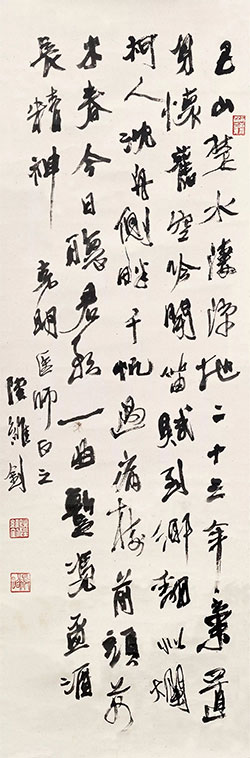 巴山楚水淒涼地二十三年棄置
身懷舊空吟聞笛賦到鄉翻似爛
柯人沈舟側畔千帆過病樹前頭萬
木春今日聽君歌一曲暫憑盃酒
長精神 明医師正之
陸維釗